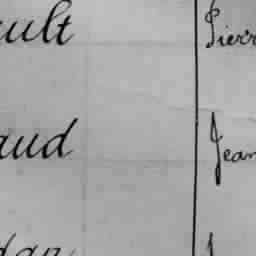 ault Pierr
aud Jean
dan J